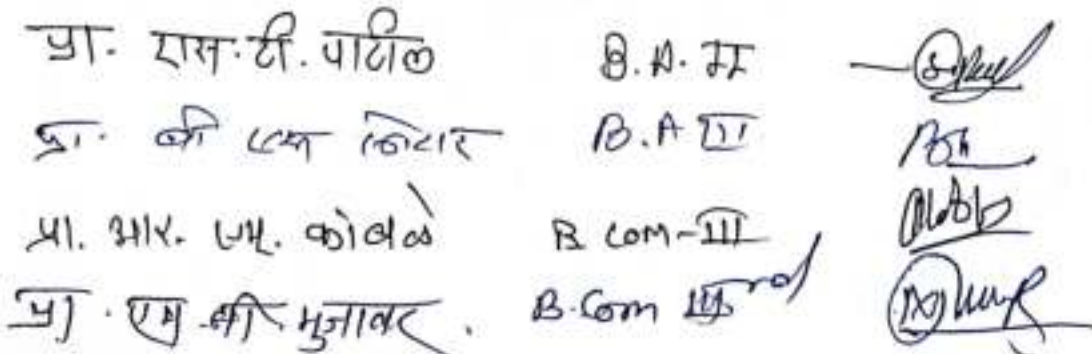 प्रा. एस. टी. पाटील B.A. II
प्रा. बी एम B.A III
प्रा. आर. एम. कांबळे B Com-III
प्रा. एम. बी. मुजावर. B.Com IIIrd